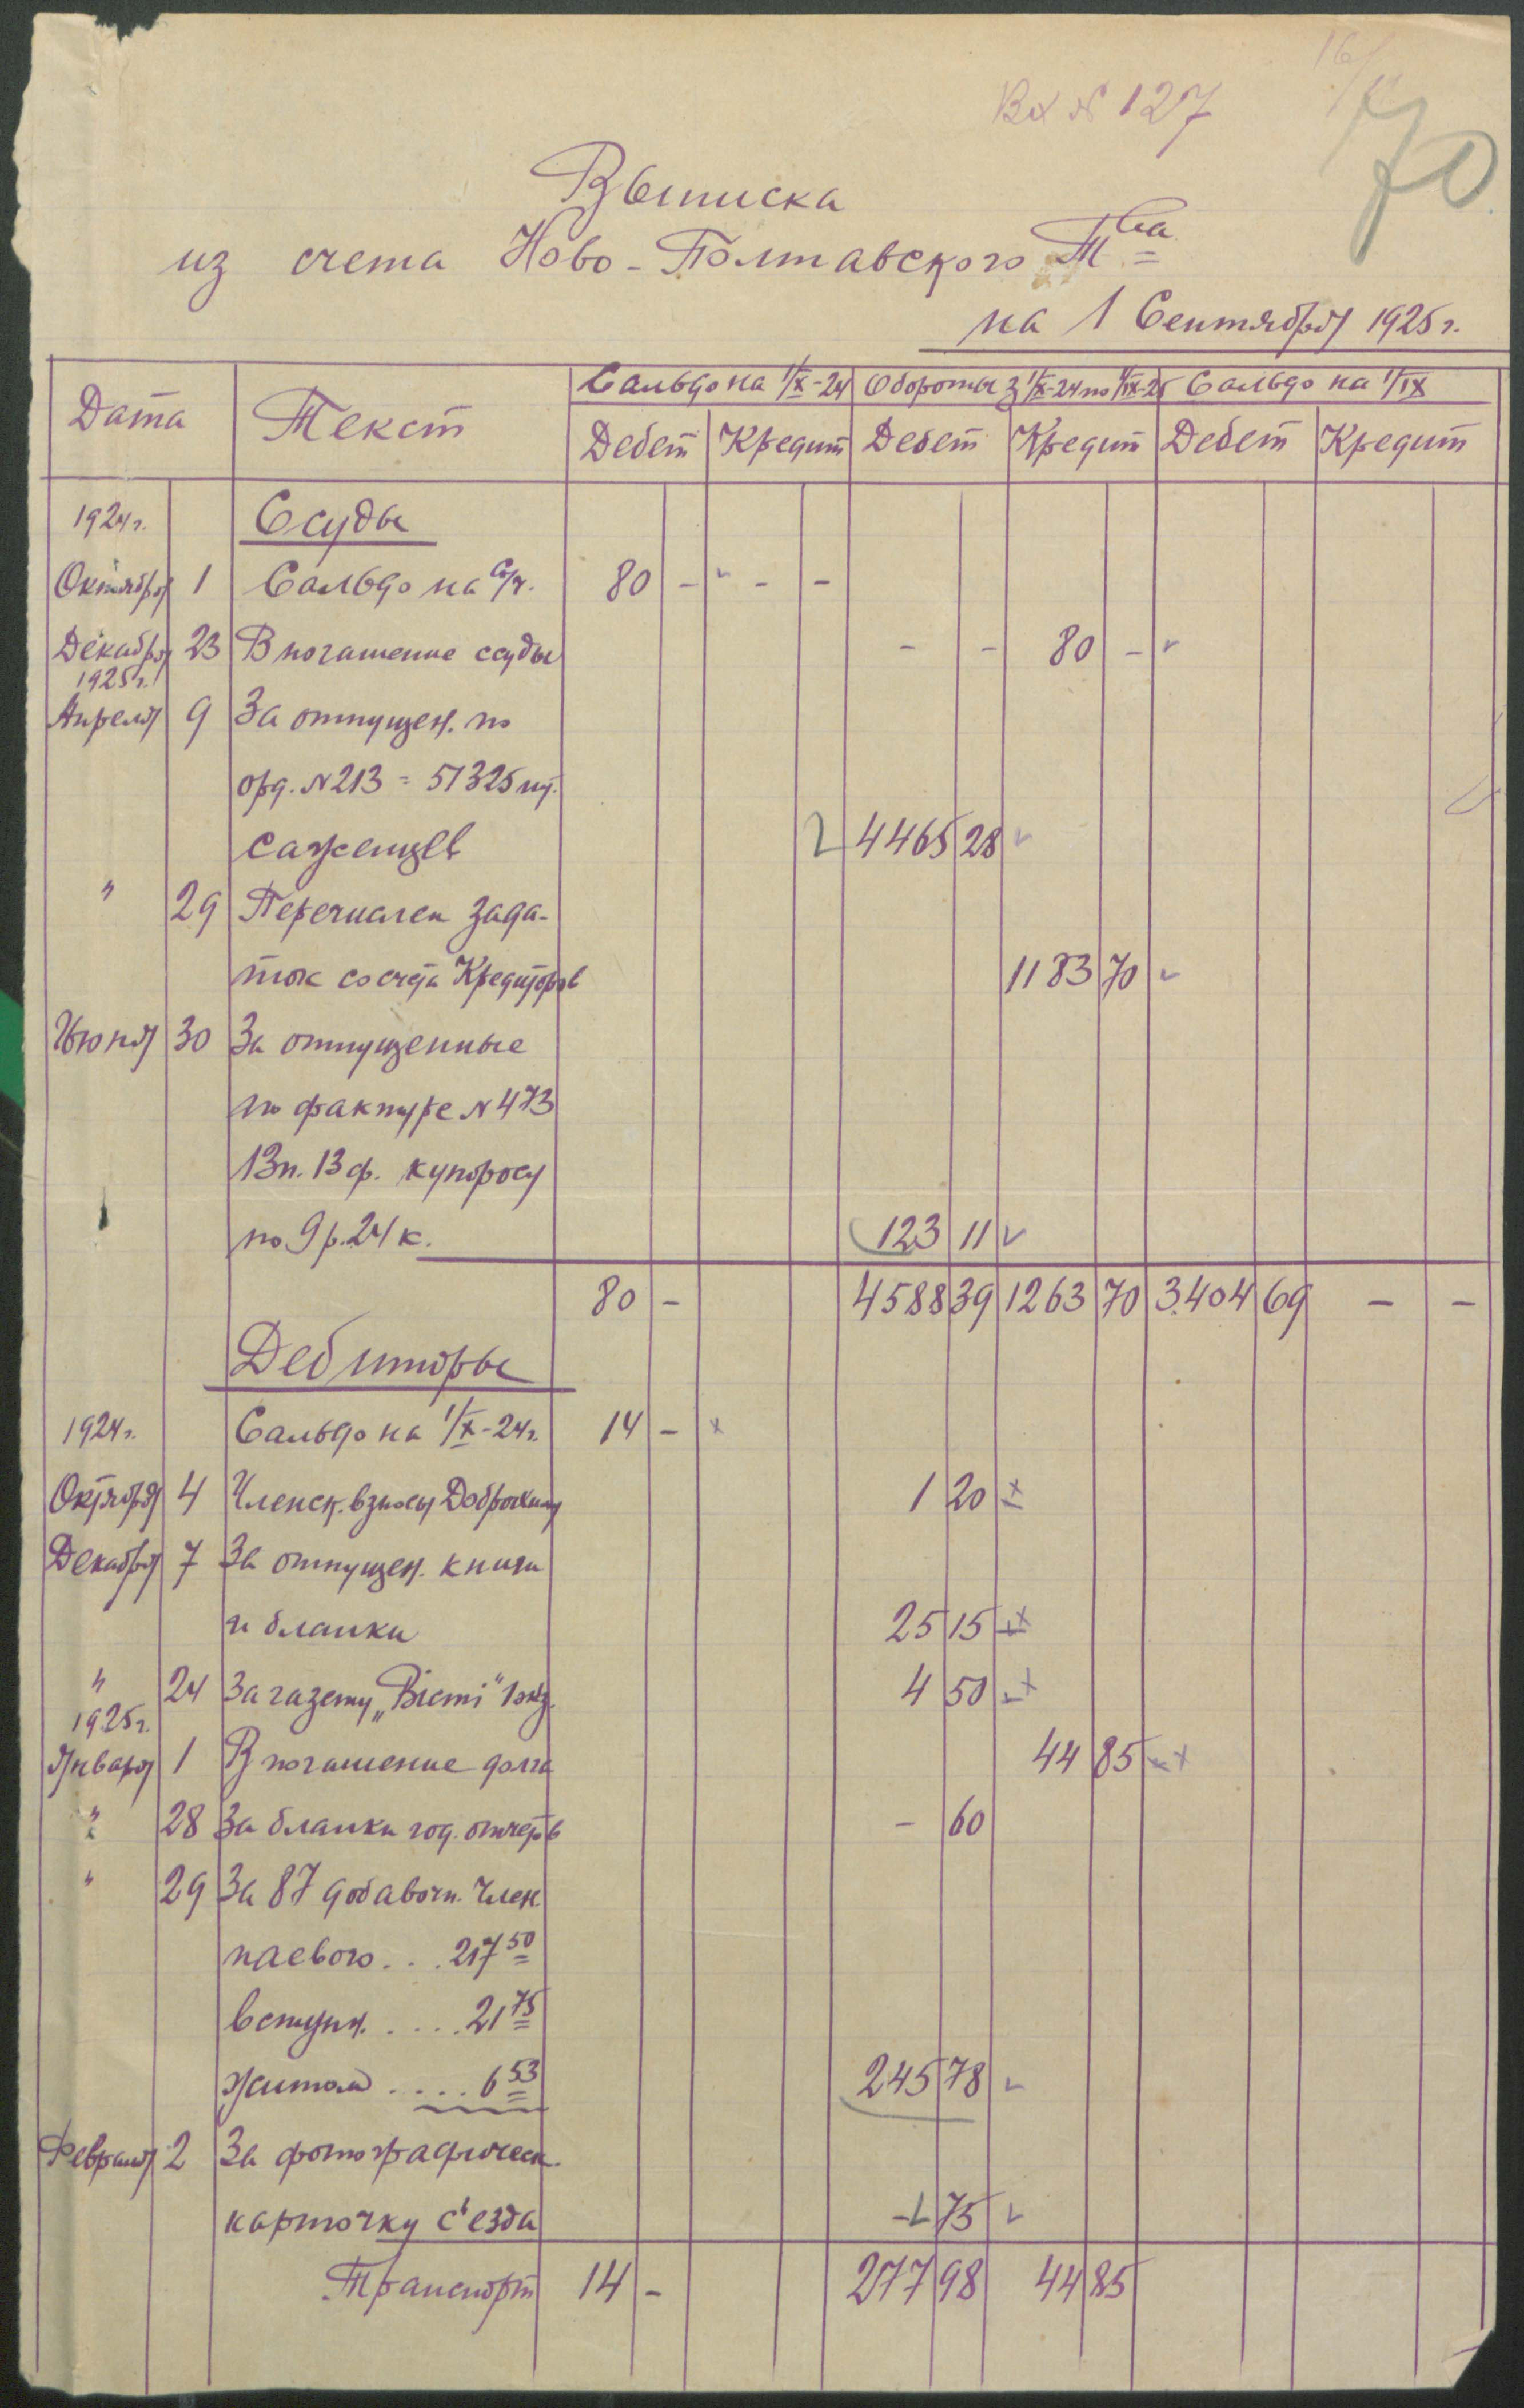 Вх № 127
70
Выписка
из счета Ново-Полтавского Т-ва
на 1 Сентября 1925 г.
Дата Текст Сальдо на 1/X-24 Обороты з 1/X-24 по 1/IX-25 Сальдо на 1/IX
Дебет Кредит Дебет Кредит Дебет Кредит
1924 г. Ссуды
Октября 1 Сальдо на с/ч. 80 - - -
Декабря 23 В погашение ссуды - - 80 -
1925 г.
Апреля 9 За отпущен. по
орд. №213 = 51325 шт.
саженцев 4465 28
" 29 Перечислен зада-
ток со счета Кредиторов 1183 70
Июня 30 За отпущенные
по фактуре №473
13 п. 13 ф. купоросу
по 9 р. 24 к. 123 11
80 - 4588 39 1263 70 3404 69 - -
Дебиторы
1924 г. Сальдо на 1/X-24 г. 14 -
Октября 4 Членск. взносы Доброхиму 1 20
Декабря 7 За отпущен. книги
и бланки 25 15
" 24 За газету „Вісті" 1 экз. 4 50
1925 г.
Января 1 В погашение долга 44 85
" 28 За бланки год. отчетов - 60
" 29 За 87 добавочн. член.
паевого . . . 217 50
вступн. . . . . 21 75
. . . . . 6 53 245 78
Февраля 2 За фотографическ.
карточку с'езда - 75
Транспорт 14 - 277 98 44 85